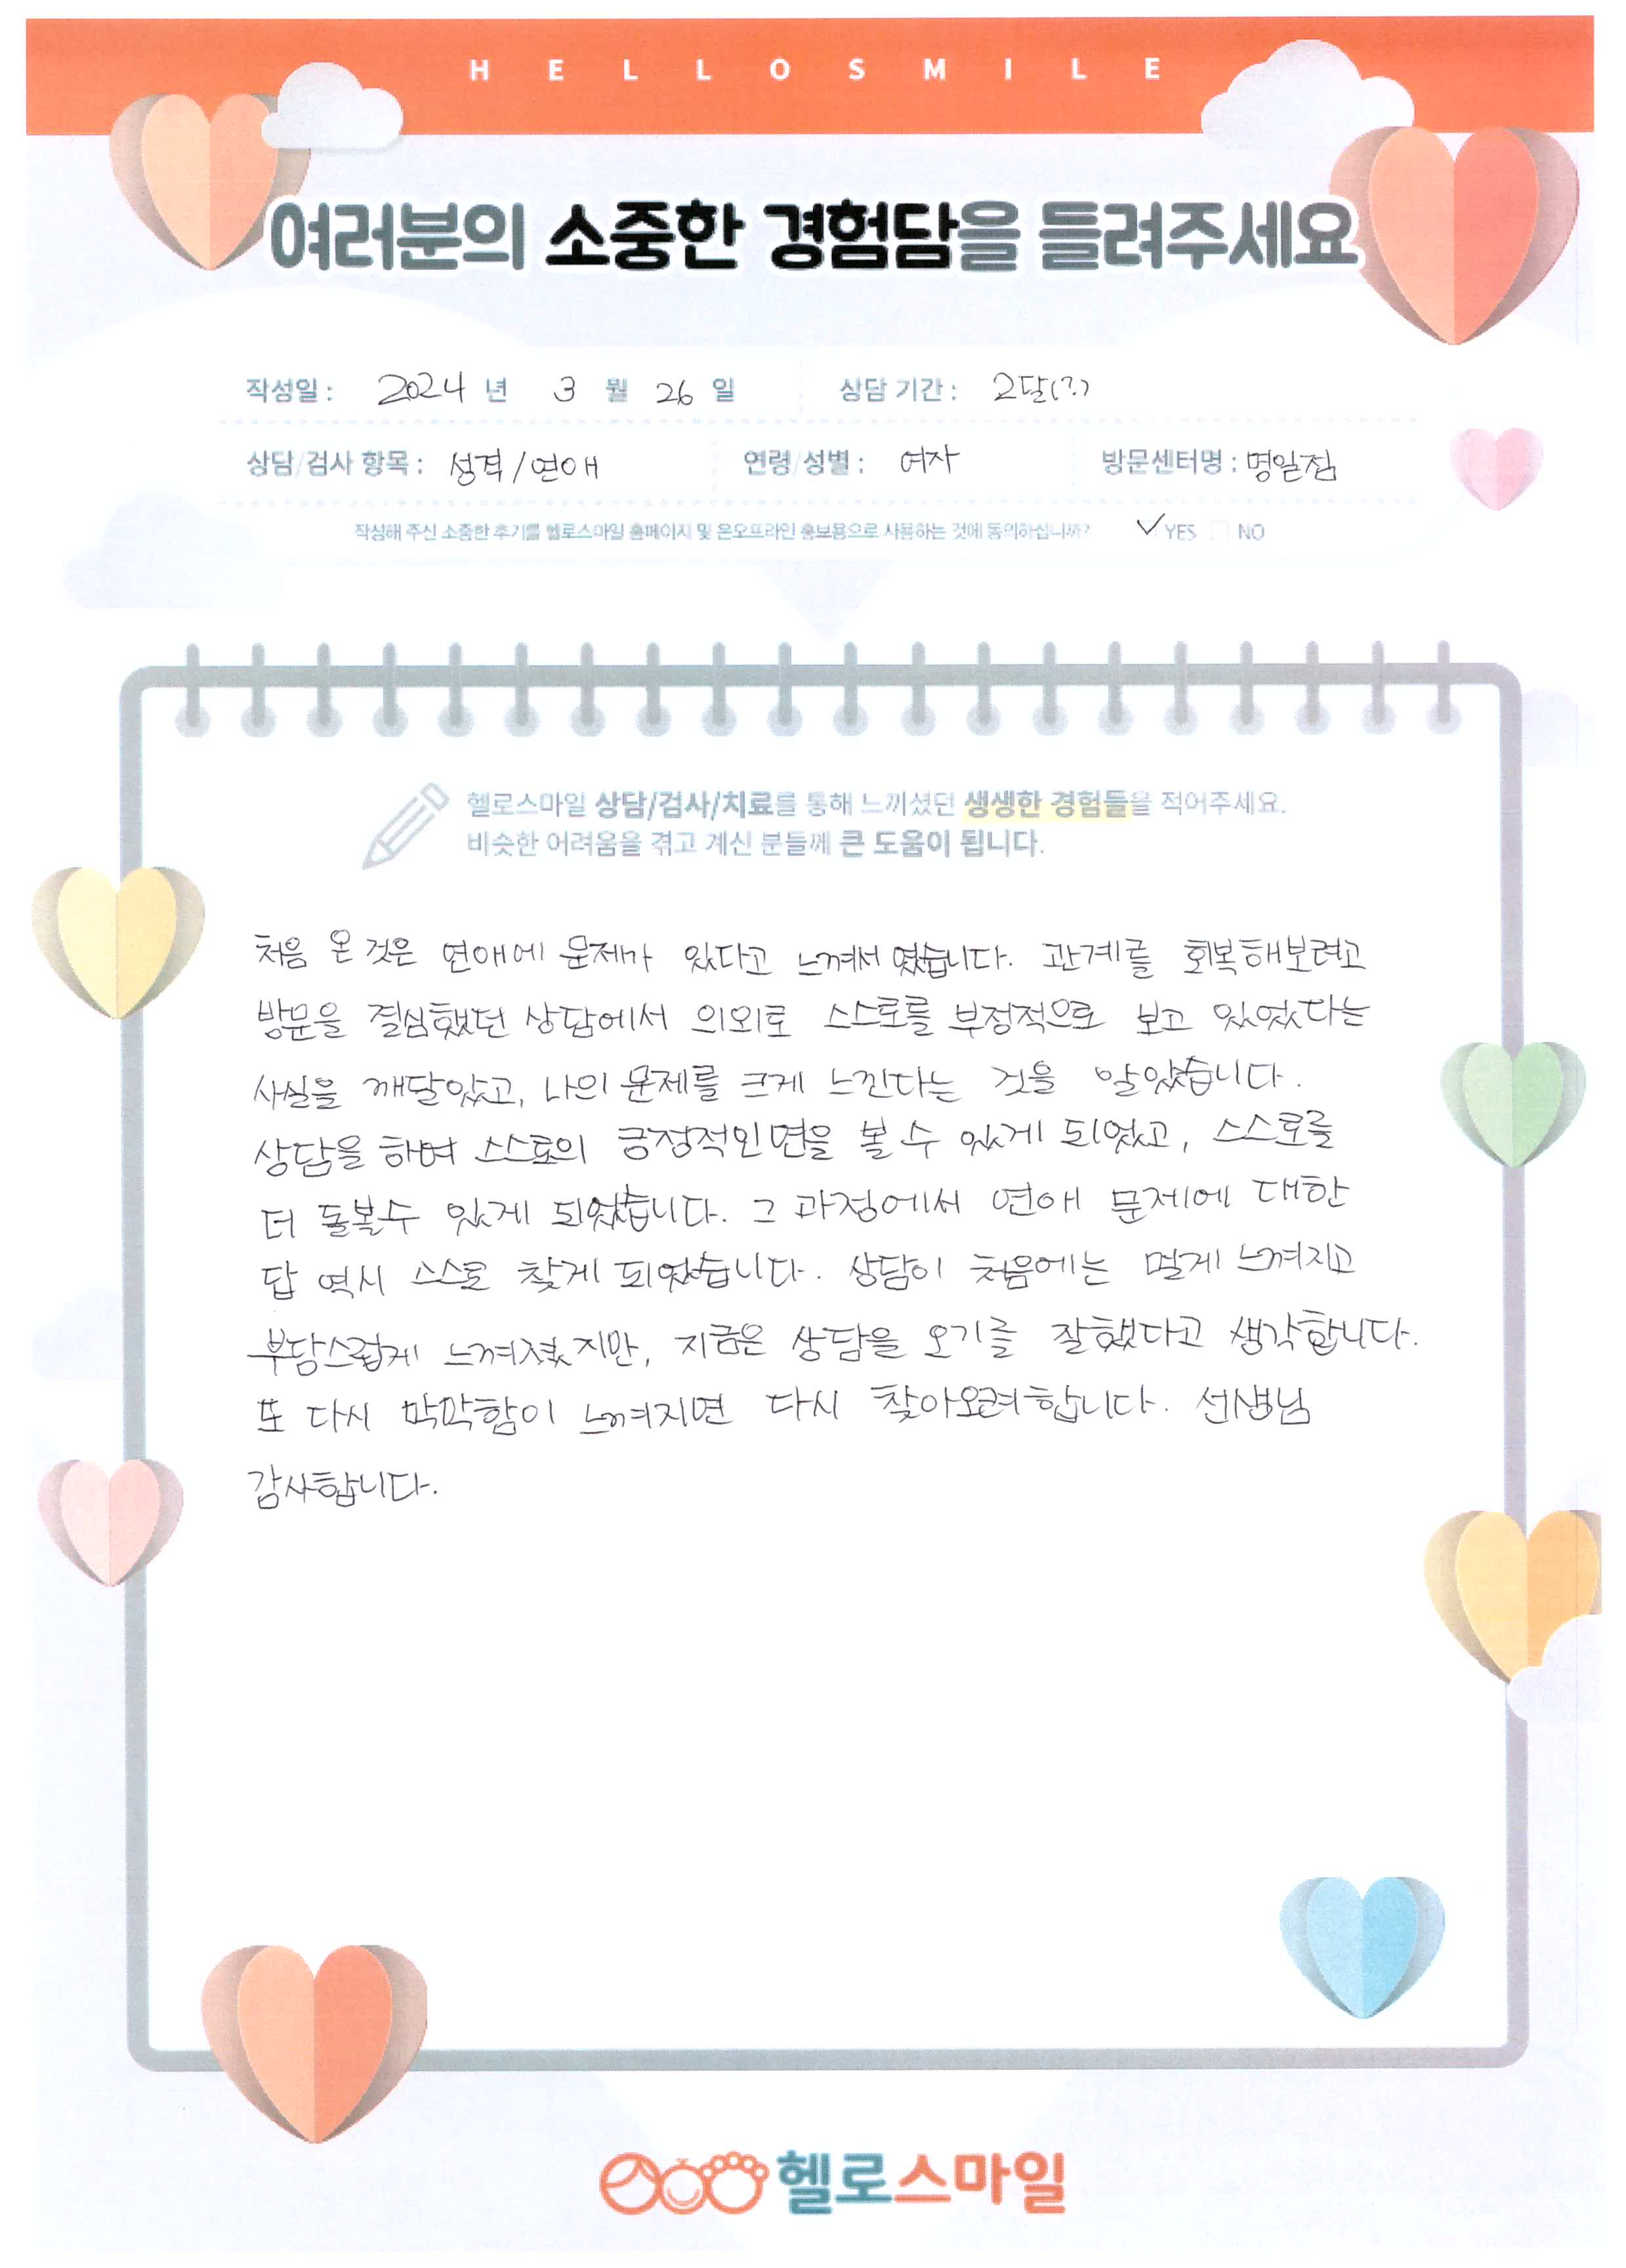 HELLOSMILE
여러분의 소중한 경험담을 들려주세요
작성일 : 2024 년 3 월 26 일 상담 기간 : 2달(?)
상담/검사 항목 : 성격/연애 연령/성별 : 여자 방문센터명 : 명일점
작성해 주신 소중한 후기를 헬로스마일 홈페이지 및 온오프라인 홍보용으로 사용하는 것에 동의하십니까? ✓YES □ NO
헬로스마일 상담/검사/치료를 통해 느끼셨던 생생한 경험들을 적어주세요.
비슷한 어려움을 겪고 계신 분들께 큰 도움이 됩니다.
처음 온 것은 연애에 문제가 있다고 느껴서 였습니다. 관계를 회복해보려고
방문을 결심했던 상담에서 의외로 스스로를 부정적으로 보고 있었다는
사실을 깨달았고, 나의 문제를 크게 느낀다는 것을 알았습니다.
상담을 하며 스스로의 긍정적인면을 볼 수 있게 되었고, 스스로를
더 돌볼수 있게 되었습니다. 그 과정에서 연애 문제에 대한
답 역시 스스로 찾게 되었습니다. 상담이 처음에는 멀게 느껴지고
부담스럽게 느껴졌지만, 지금은 상담을 오기를 잘했다고 생각합니다.
또 다시 막막함이 느껴지면 다시 찾아오려합니다. 선생님
감사합니다.
헬로스마일